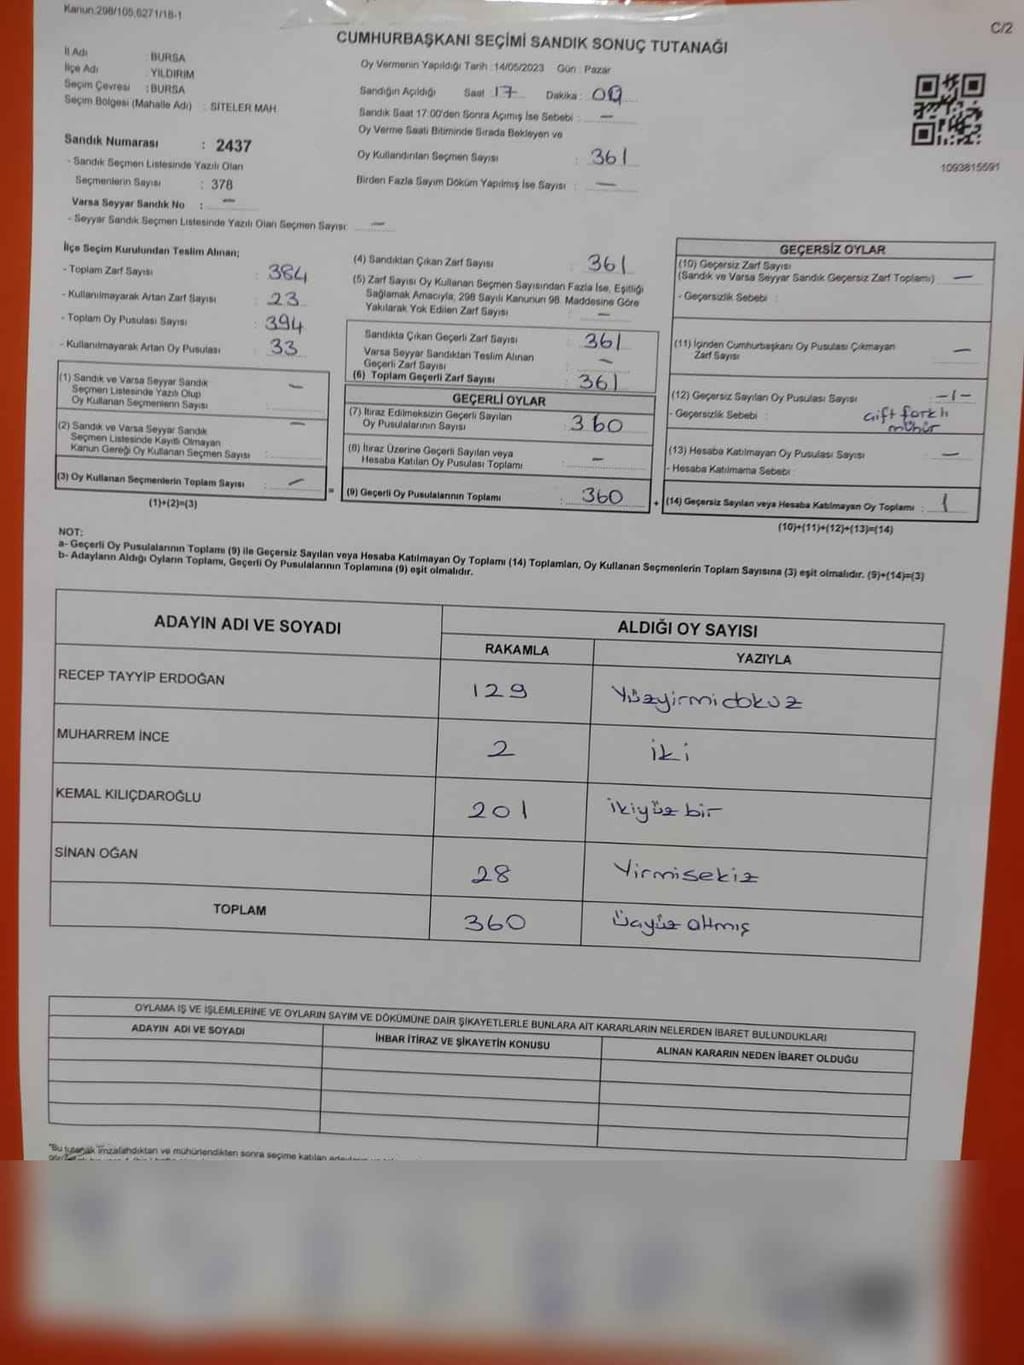 Kanun:298/105,6271/18-1
C/2
CUMHURBAŞKANI SEÇİMİ SANDIK SONUÇ TUTANAĞI
İl Adı : BURSA
İlçe Adı : YILDIRIM
Seçim Çevresi : BURSA
Seçim Bölgesi (Mahalle Adı) : SİTELER MAH.
Sandık Numarası : 2437
- Sandık Seçmen Listesinde Yazılı Olan
Seçmenlerin Sayısı : 378
Varsa Seyyar Sandık No : —
- Seyyar Sandık Seçmen Listesinde Yazılı Olan Seçmen Sayısı: —
Oy Vermenin Yapıldığı Tarih : 14/05/2023 Gün : Pazar
Sandığın Açıldığı Saat : 17 Dakika : 00
Sandık Saat 17:00'den Sonra Açımış İse Sebebi : —
Oy Verme Saati Bitiminde Sırada Bekleyen ve
Oy Kullandırılan Seçmen Sayısı : 361
Birden Fazla Sayım Döküm Yapılmış İse Sayısı : —
1093815591
İlçe Seçim Kurulundan Teslim Alınan;
- Toplam Zarf Sayısı : 384
- Kullanılmayarak Artan Zarf Sayısı : 23
- Toplam Oy Pusulası Sayısı : 394
- Kullanılmayarak Artan Oy Pusulası : 33
(1) Sandık ve Varsa Seyyar Sandık
Seçmen Listesinde Yazılı Olup
Oy Kullanan Seçmenlerin Sayısı : —
(2) Sandık ve Varsa Seyyar Sandık
Seçmen Listesinde Kayıtlı Olmayan
Kanun Gereği Oy Kullanan Seçmen Sayısı : —
(3) Oy Kullanan Seçmenlerin Toplam Sayısı : —
(1)+(2)=(3)
(4) Sandıktan Çıkan Zarf Sayısı : 361
(5) Zarf Sayısı Oy Kullanan Seçmen Sayısından Fazla İse, Eşitliği
Sağlamak Amacıyla, 298 Sayılı Kanunun 98. Maddesine Göre
Yakılarak Yok Edilen Zarf Sayısı : —
Sandıkta Çıkan Geçerli Zarf Sayısı : 361
Varsa Seyyar Sandıktan Teslim Alınan
Geçerli Zarf Sayısı : —
(6) Toplam Geçerli Zarf Sayısı : 361
GEÇERLİ OYLAR
(7) İtiraz Edilmeksizin Geçerli Sayılan
Oy Pusulalarının Sayısı : 360
(8) İtiraz Üzerine Geçerli Sayılan veya
Hesaba Katılan Oy Pusulası Toplamı : —
= (9) Geçerli Oy Pusulalarının Toplamı : 360
GEÇERSİZ OYLAR
(10) Geçersiz Zarf Sayısı
(Sandık ve Varsa Seyyar Sandık Geçersiz Zarf Toplamı) : —
- Geçersizlik Sebebi :
(11) İçinden Cumhurbaşkanı Oy Pusulası Çıkmayan
Zarf Sayısı : —
(12) Geçersiz Sayılan Oy Pusulası Sayısı : -1-
- Geçersizlik Sebebi : Çift farklı
mühür
(13) Hesaba Katılmayan Oy Pusulası Sayısı : —
- Hesaba Katılmama Sebebi :
+ (14) Geçersiz Sayılan veya Hesaba Katılmayan Oy Toplamı : 1
(10)+(11)+(12)+(13)=(14)
NOT:
a- Geçerli Oy Pusulalarının Toplamı (9) ile Geçersiz Sayılan veya Hesaba Katılmayan Oy Toplamı (14) Toplamları, Oy Kullanan Seçmenlerin Toplam Sayısına (3) eşit olmalıdır. (9)+(14)=(3)
b- Adayların Aldığı Oyların Toplamı, Geçerli Oy Pusulalarının Toplamına (9) eşit olmalıdır.
ADAYIN ADI VE SOYADI ALDIĞI OY SAYISI
RAKAMLA YAZIYLA
RECEP TAYYİP ERDOĞAN 129 Yüzyirmidokuz
MUHARREM İNCE 2 iki
KEMAL KILIÇDAROĞLU 201 ikiyüz bir
SİNAN OĞAN 28 Yirmisekiz
TOPLAM 360 üçyüz altmış
OYLAMA İŞ VE İŞLEMLERİNE VE OYLARIN SAYIM VE DÖKÜMÜNE DAİR ŞİKAYETLERLE BUNLARA AİT KARARLARIN NELERDEN İBARET BULUNDUKLARI
ADAYIN ADI VE SOYADI İHBAR İTİRAZ VE ŞİKAYETİN KONUSU ALINAN KARARIN NEDEN İBARET OLDUĞU
"Bu tutanak imzalandıktan ve mühürlendikten sonra seçime katılan